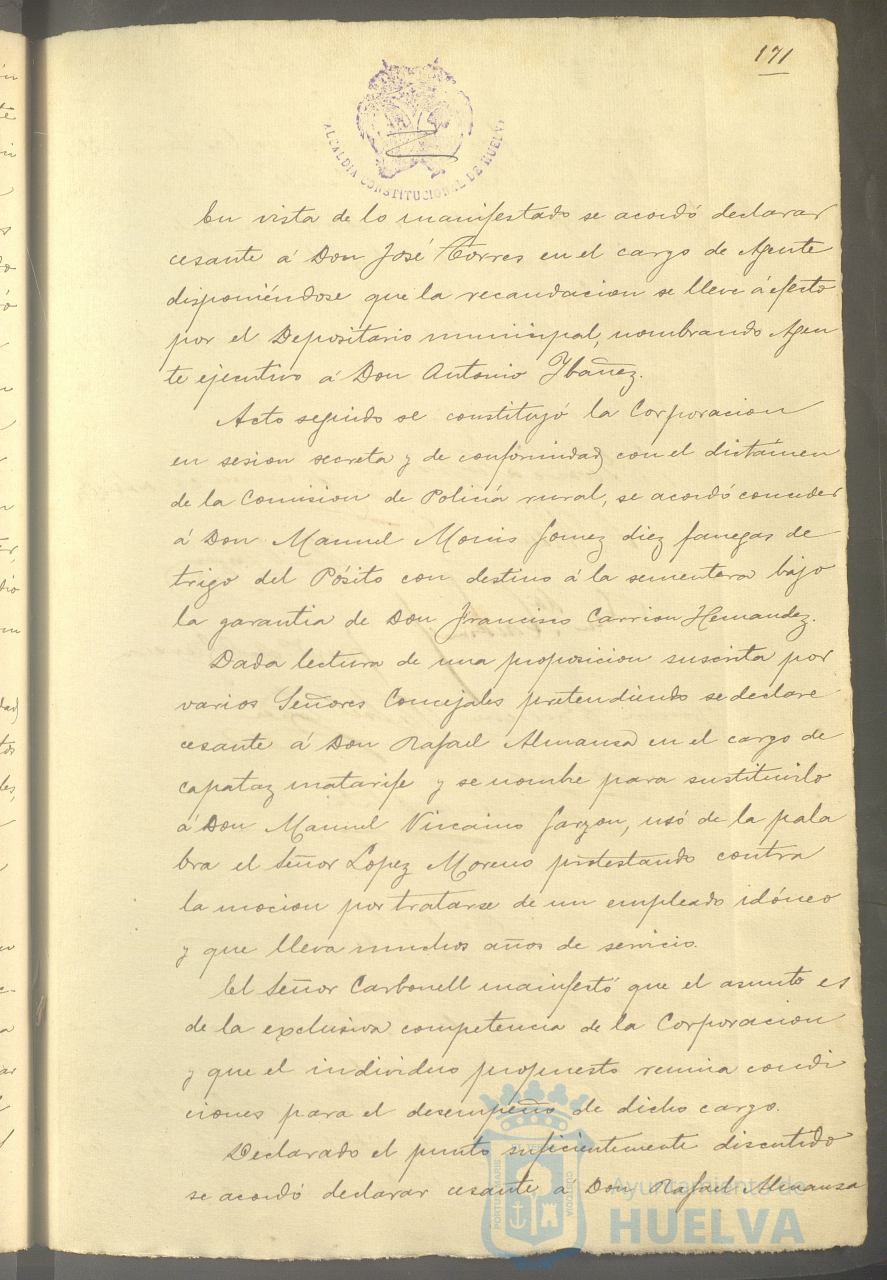 171
ALCALDIA CONSTITUCIONAL DE HUELVA
En vista de lo manifestado se acordó declarar
cesante á Don José Torres en el cargo de Agente
disponiéndose que la recaudacion se lleve á efecto
por el Depositario municipal, nombrando Agen
te ejecutivo á Don Antonio Ybañez.
Acto seguido se constituyó la Corporacion
en sesion secreta y de conformidad con el dictámen
de la Comision de Policía rural, se acordó conceder
á Don Manuel Gomez diez fanegas de
trigo del Pósito con destino á la sementera bajo
la garantia de Don Francisco Carrion Hernandez.
Dada lectura de una proposicion suscrita por
varios Señores Concejales pretendiendo se declare
cesante á Don Rafael Almansa en el cargo de
capataz matarife y se nombre para sustituirlo
á Don Manuel Viscaino Garzon, usó de la pala
bra el Señor Lopez Moreno protestando contra
la mocion por tratarse de un empleado idóneo
y que lleva muchos años de servicio.
El Señor Carbonell manifestó que el asunto es
de la exclusiva competencia de la Corporacion
y que el individuo propuesto reunia condi
ciones para el desempeño de dicho cargo.
Declarado el punto suficientemente discutido
se acordó declarar cesante á Don Rafael Almansa
PORTUS MARIS ET TERRAE CUSTODIA
Ayuntamiento de
HUELVA